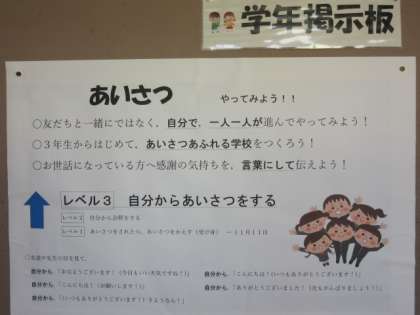 学年掲示板
あいさつ　やってみよう！！
○友だちと一緒にではなく、自分で、一人一人が進んでやってみよう！
○３年生からはじめて、あいさつあふれる学校をつくろう！
○お世話になっている方へ感謝の気持ちを、言葉にして伝えよう！
レベル３　自分からあいさつをする
レベル２　自分から会釈をする
レベル１　あいさつをされたら、あいさつをかえす（受け身）　－１１月１１日
自分から、「おはようございます！（今日もいい天気ですね！）」　自分から、「こんにちは！（いつもありがとうございます！）」
自分から、「こんにちは！（お願いします！）」　自分から、「ありがとうございました！（次もがんばりましょう！）」
自分から、「（いつもありがとうございます！）さようなら！」